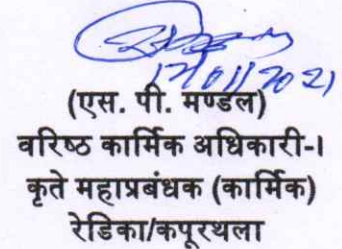 12/01/2021
(एस. पी. मण्डल)
वरिष्ठ कार्मिक अधिकारी-I
कृते महाप्रबंधक (कार्मिक)
रेडिका/कपूरथला